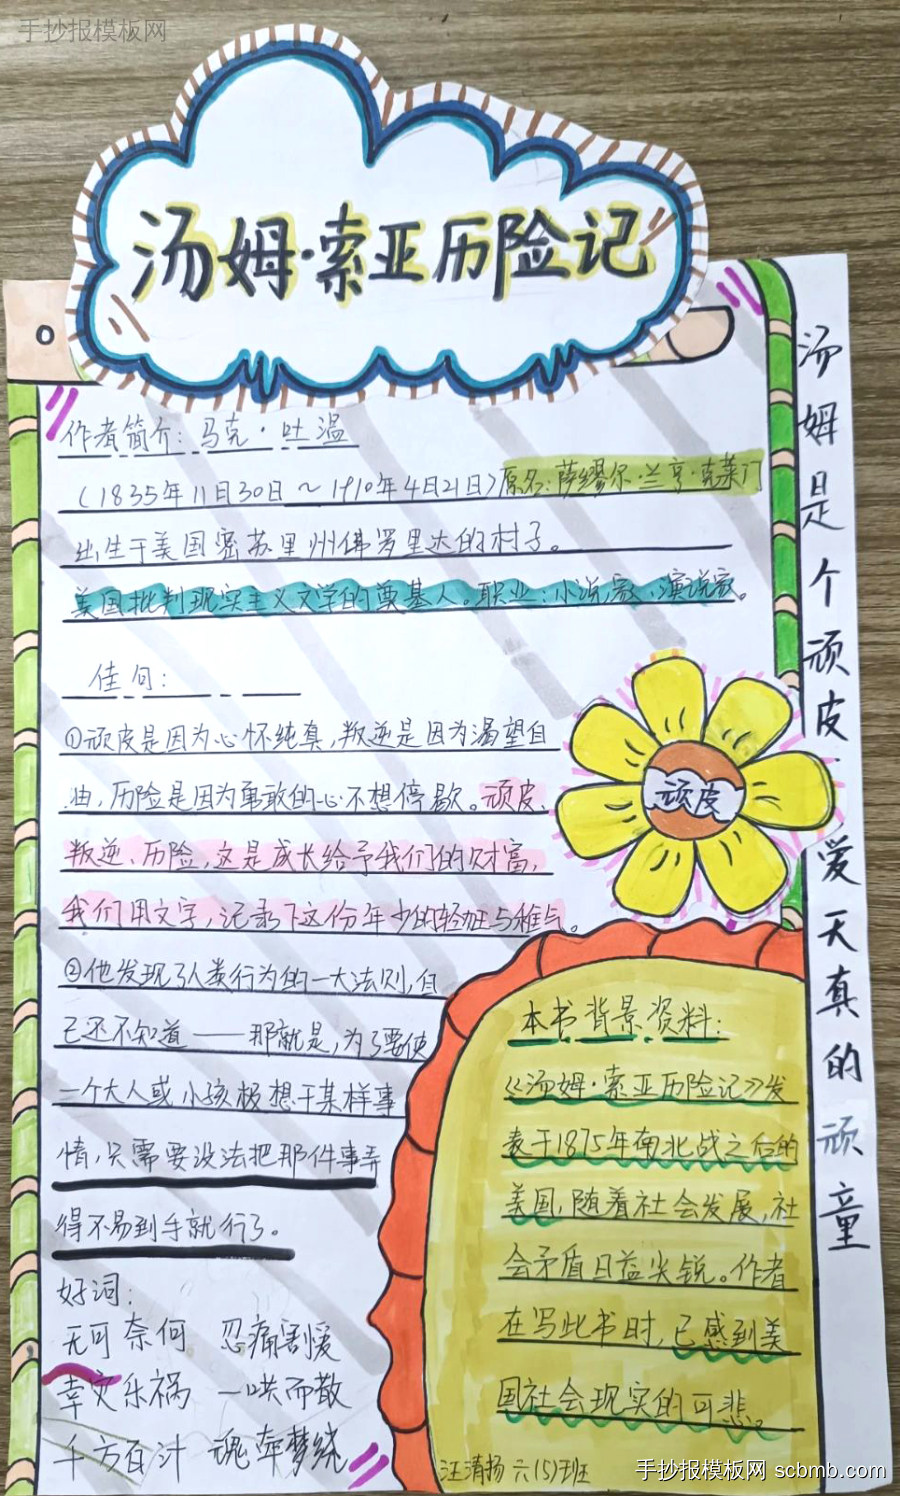 手抄报模板网
汤姆·索亚历险记
作者简介：马克·吐温
（1835年11月30日～1910年4月21日）原名：萨缪尔·兰亨·克莱门
出生于美国密苏里州佛罗里达的村子。
美国批判现实主义文学的奠基人。职业：小说家、演说家。
佳句：
①顽皮是因为心怀纯真，叛逆是因为渴望自
由，历险是因为勇敢的心不想停歇。顽皮、
叛逆、历险，这是成长给予我们的财富，
我们用文字，记录下这份年少的轻狂与稚气。
②他发现了人类行为的一大法则，自
己还不知道——那就是，为了要使
一个大人或小孩极想干某样事
情，只需要设法把那件事弄
得不易到手就行了。
好词：
无可奈何 忍痛割爱
幸灾乐祸 一哄而散
千方百计 魂牵梦绕
顽皮
本书背景资料：
《汤姆·索亚历险记》发
表于1875年南北战之后的
美国，随着社会发展，社
会矛盾日益尖锐。作者
在写此书时，已感到美
国社会现实的可悲。
汪清扬 六(5)班
汤姆是个顽皮爱天真的顽童
手抄报模板网 scbmb.com